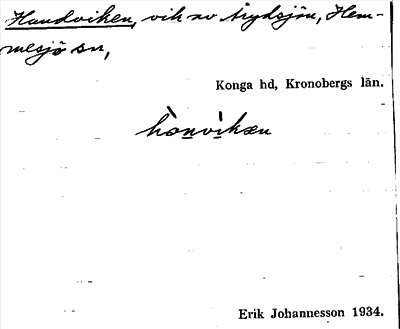 Handviken, vik av Årydsjön, Hem-
mesjö sn,
Konga hd, Kronobergs län.
hònvìkæn
Erik Johannesson 1934.